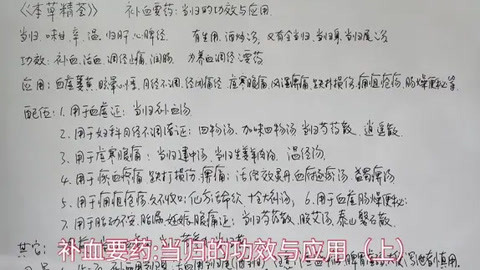 《本草精荟》 补血要药:当归的功效与应用.
当归 味甘.辛.温.归肝.心脾经. 有生用.酒炒活. 又有全当归.当归身.当归尾活
功效: 补血.活血.调经止痛.润肠. 为养血调经要药
应用: 血虚萎黄.眩晕心悸.月经不调.经闭痛经.虚寒腹痛.风湿痹痛.跌打损伤.痈疽疮疡.肠燥便秘等
配伍: 1.用于血虚证: 当归补血汤
2.用于妇科月经不调诸证: 四物汤.加味四物汤.当归芍药散.逍遥散
3.用于虚寒腹痛: 当归建中汤.当归生姜羊肉汤.温经汤
4.用于瘀血疼痛.跌打损伤.痹痛: 活络效灵丹.血府逐瘀汤.蠲痹汤
5.用于痈疽疮疡久不收口: 仙方活命饮.十全大补汤. 6.用于血虚肠燥便秘:
7.用于胎动不安.胎漏.妊娠腹痛证: 当归芍药散.胶艾汤.泰山磐石散
其它:
补血要药:当归的功效与应用（上）